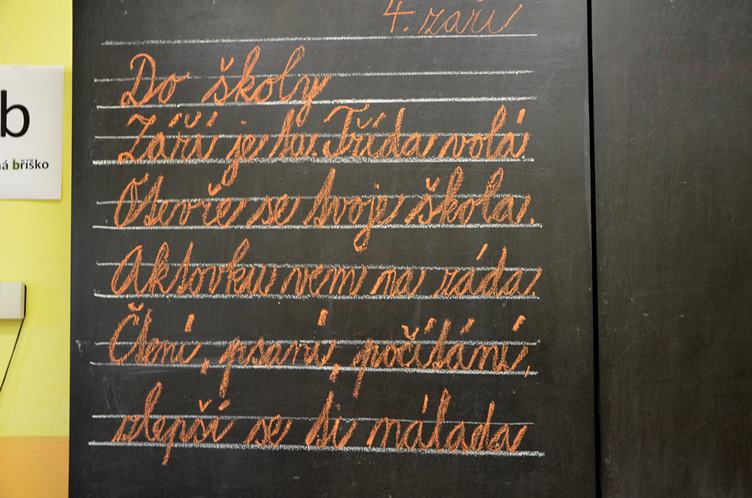 4. září
Do školy
Září je tu. Třída volá!
Otevře se tvoje škola.
Aktovku vem na záda,
Čtení, psaní, počítání,
zlepší se ti nálada
b
á bříško